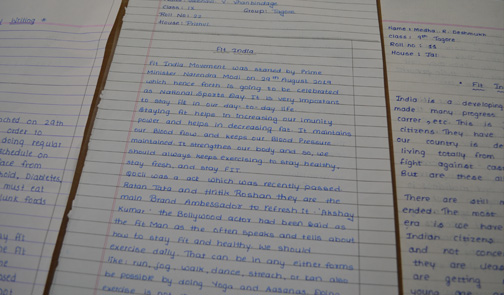 Class : 
Group : Tagore
Roll No : 22
House : Prahar
Fit India
Fit India Movement was started by Prime
Minister Narendra Modi on 29th August 2019
which hence forth is going to be celebrated
as National Sports Day. It is very important
to stay fit in our day to day life.
Staying fit helps in increasing our imunity
power and helps in decreasing fat. It maintains
our Blood flow and keeps our Blood Pressure
maintained. It strengthens our body and so, we
should always keep exercising to stay healthy,
stay fresh, and stay FIT.
was a act which was recently passed.
Ratan Tata and Hrithik Roshan they are the
main Brand Ambassador to refresh it 'Akshay
Kumar' the Bollywood actor had been said as
the Fit Man as he often speaks and tells about
how to stay fit and healthy we should
exercise daily. That can be in any either forms
like: run, jog, walk, dance, strech, or can also
be possible by doing Yoga and Aasanas. Doing
exercise is not
writing
on 29th
order to
doing regular
schedule on
from
Diabetes,
must eat
Junk foods
fit
Name : Medha. K. Deshmukh
Class : 9th Tagore
Roll no : 33
House : Jai
Fit In
India is a developing
made many progress
career etc. This is
citizens. They have
our country is de
living totally from
fight against
But are these
There are still
ended. The most
era is we have
Indian citizens
and not
they are
are getting
young